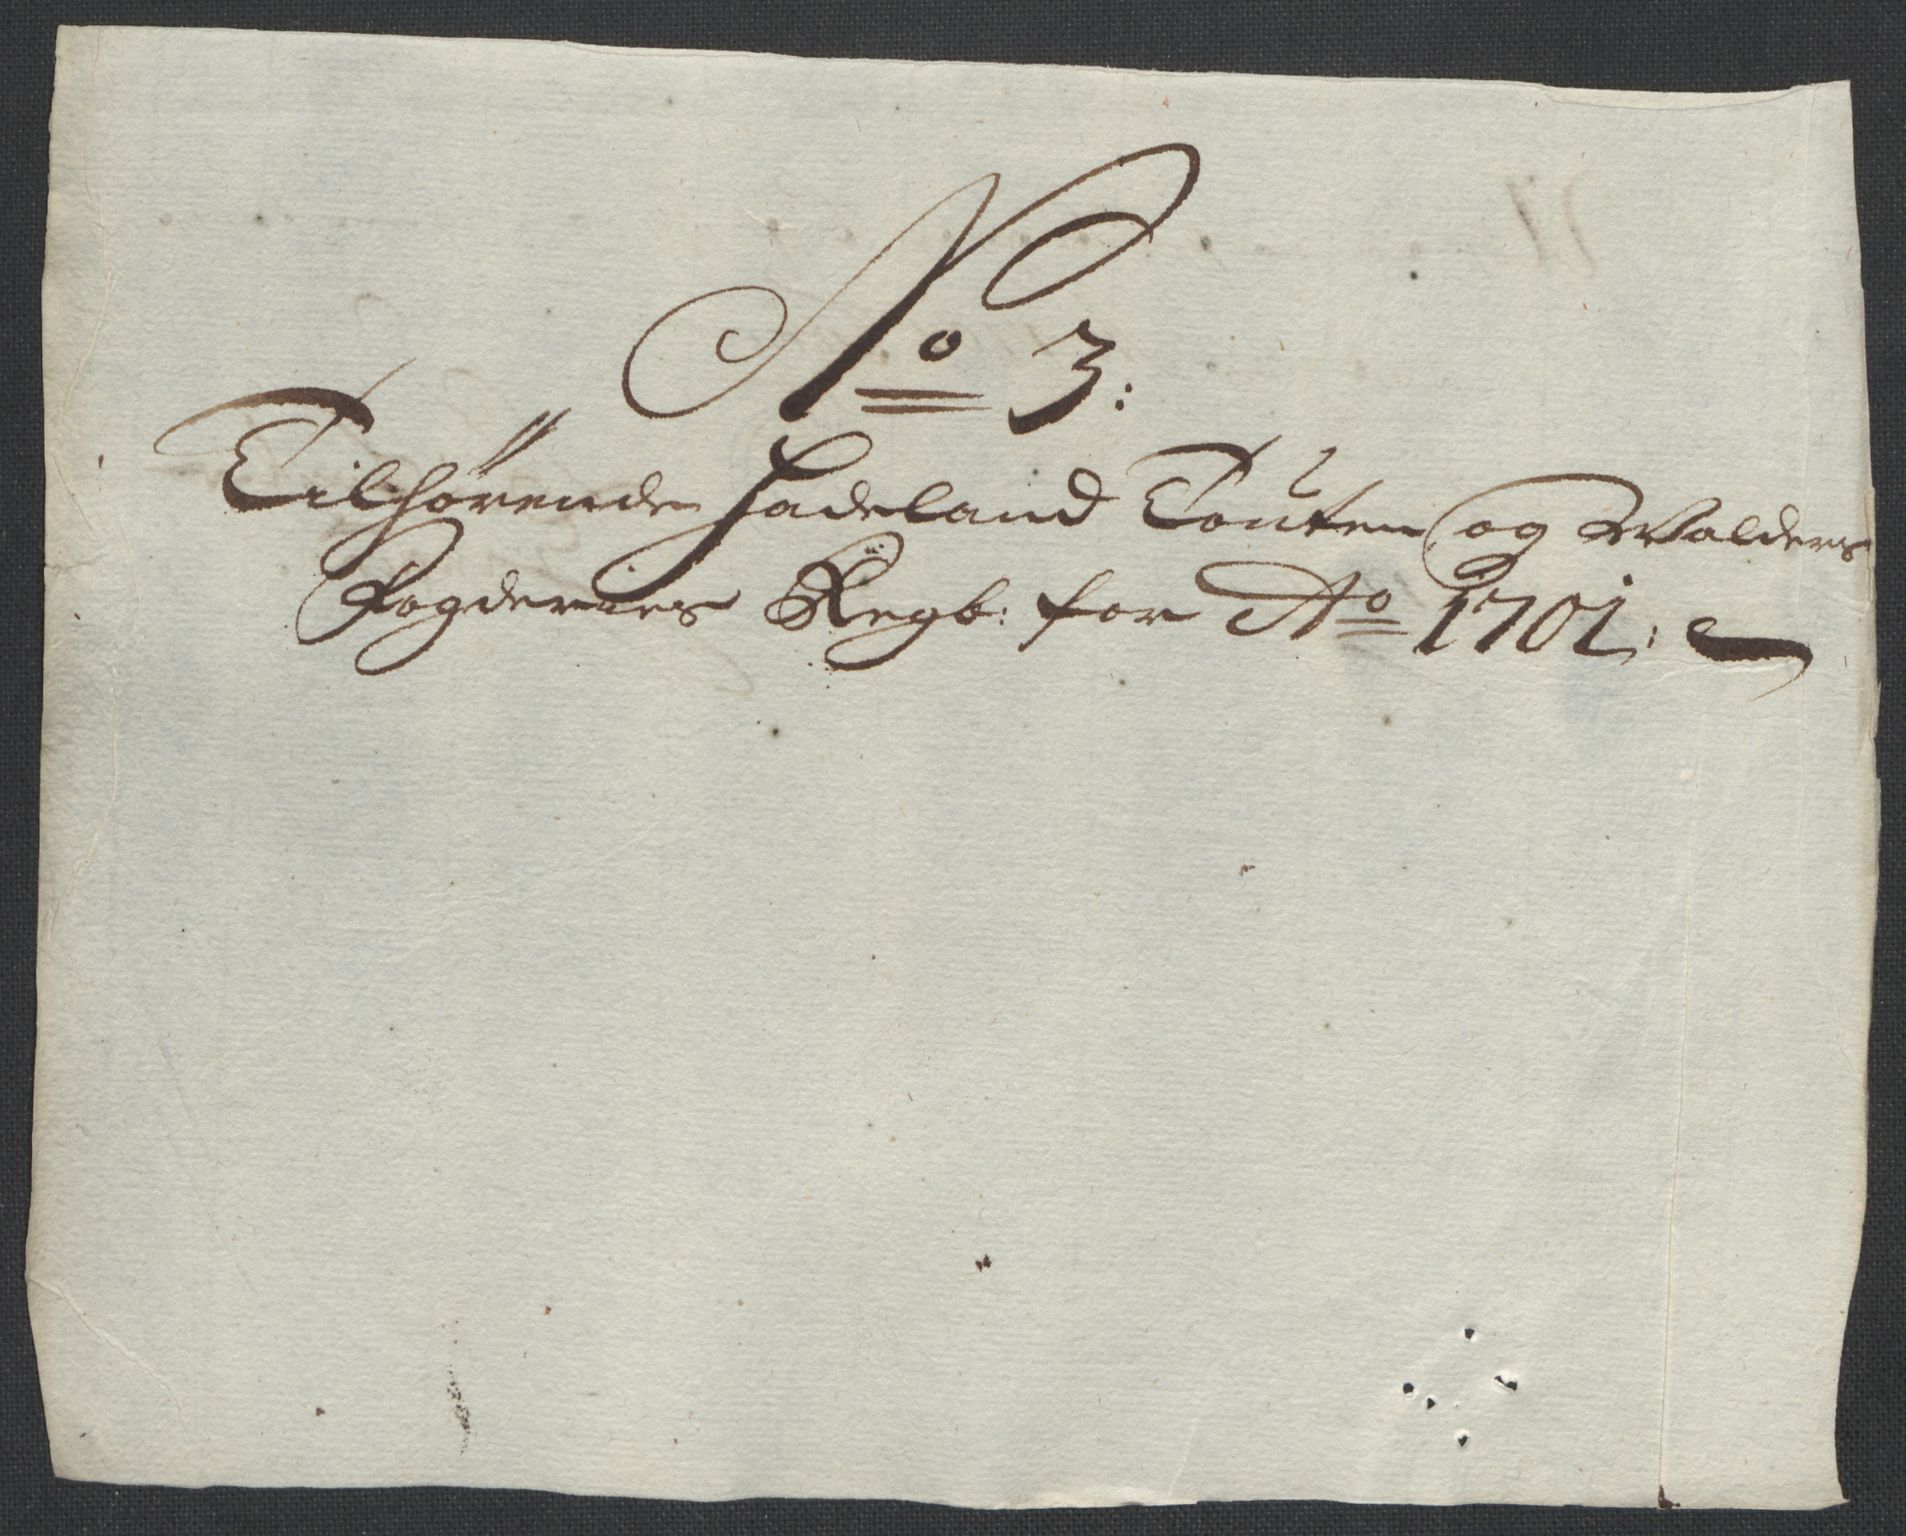 No 3:
Tilhørende Hadeland Touten og Walders
Fogderies Regb: for Ao 1701: